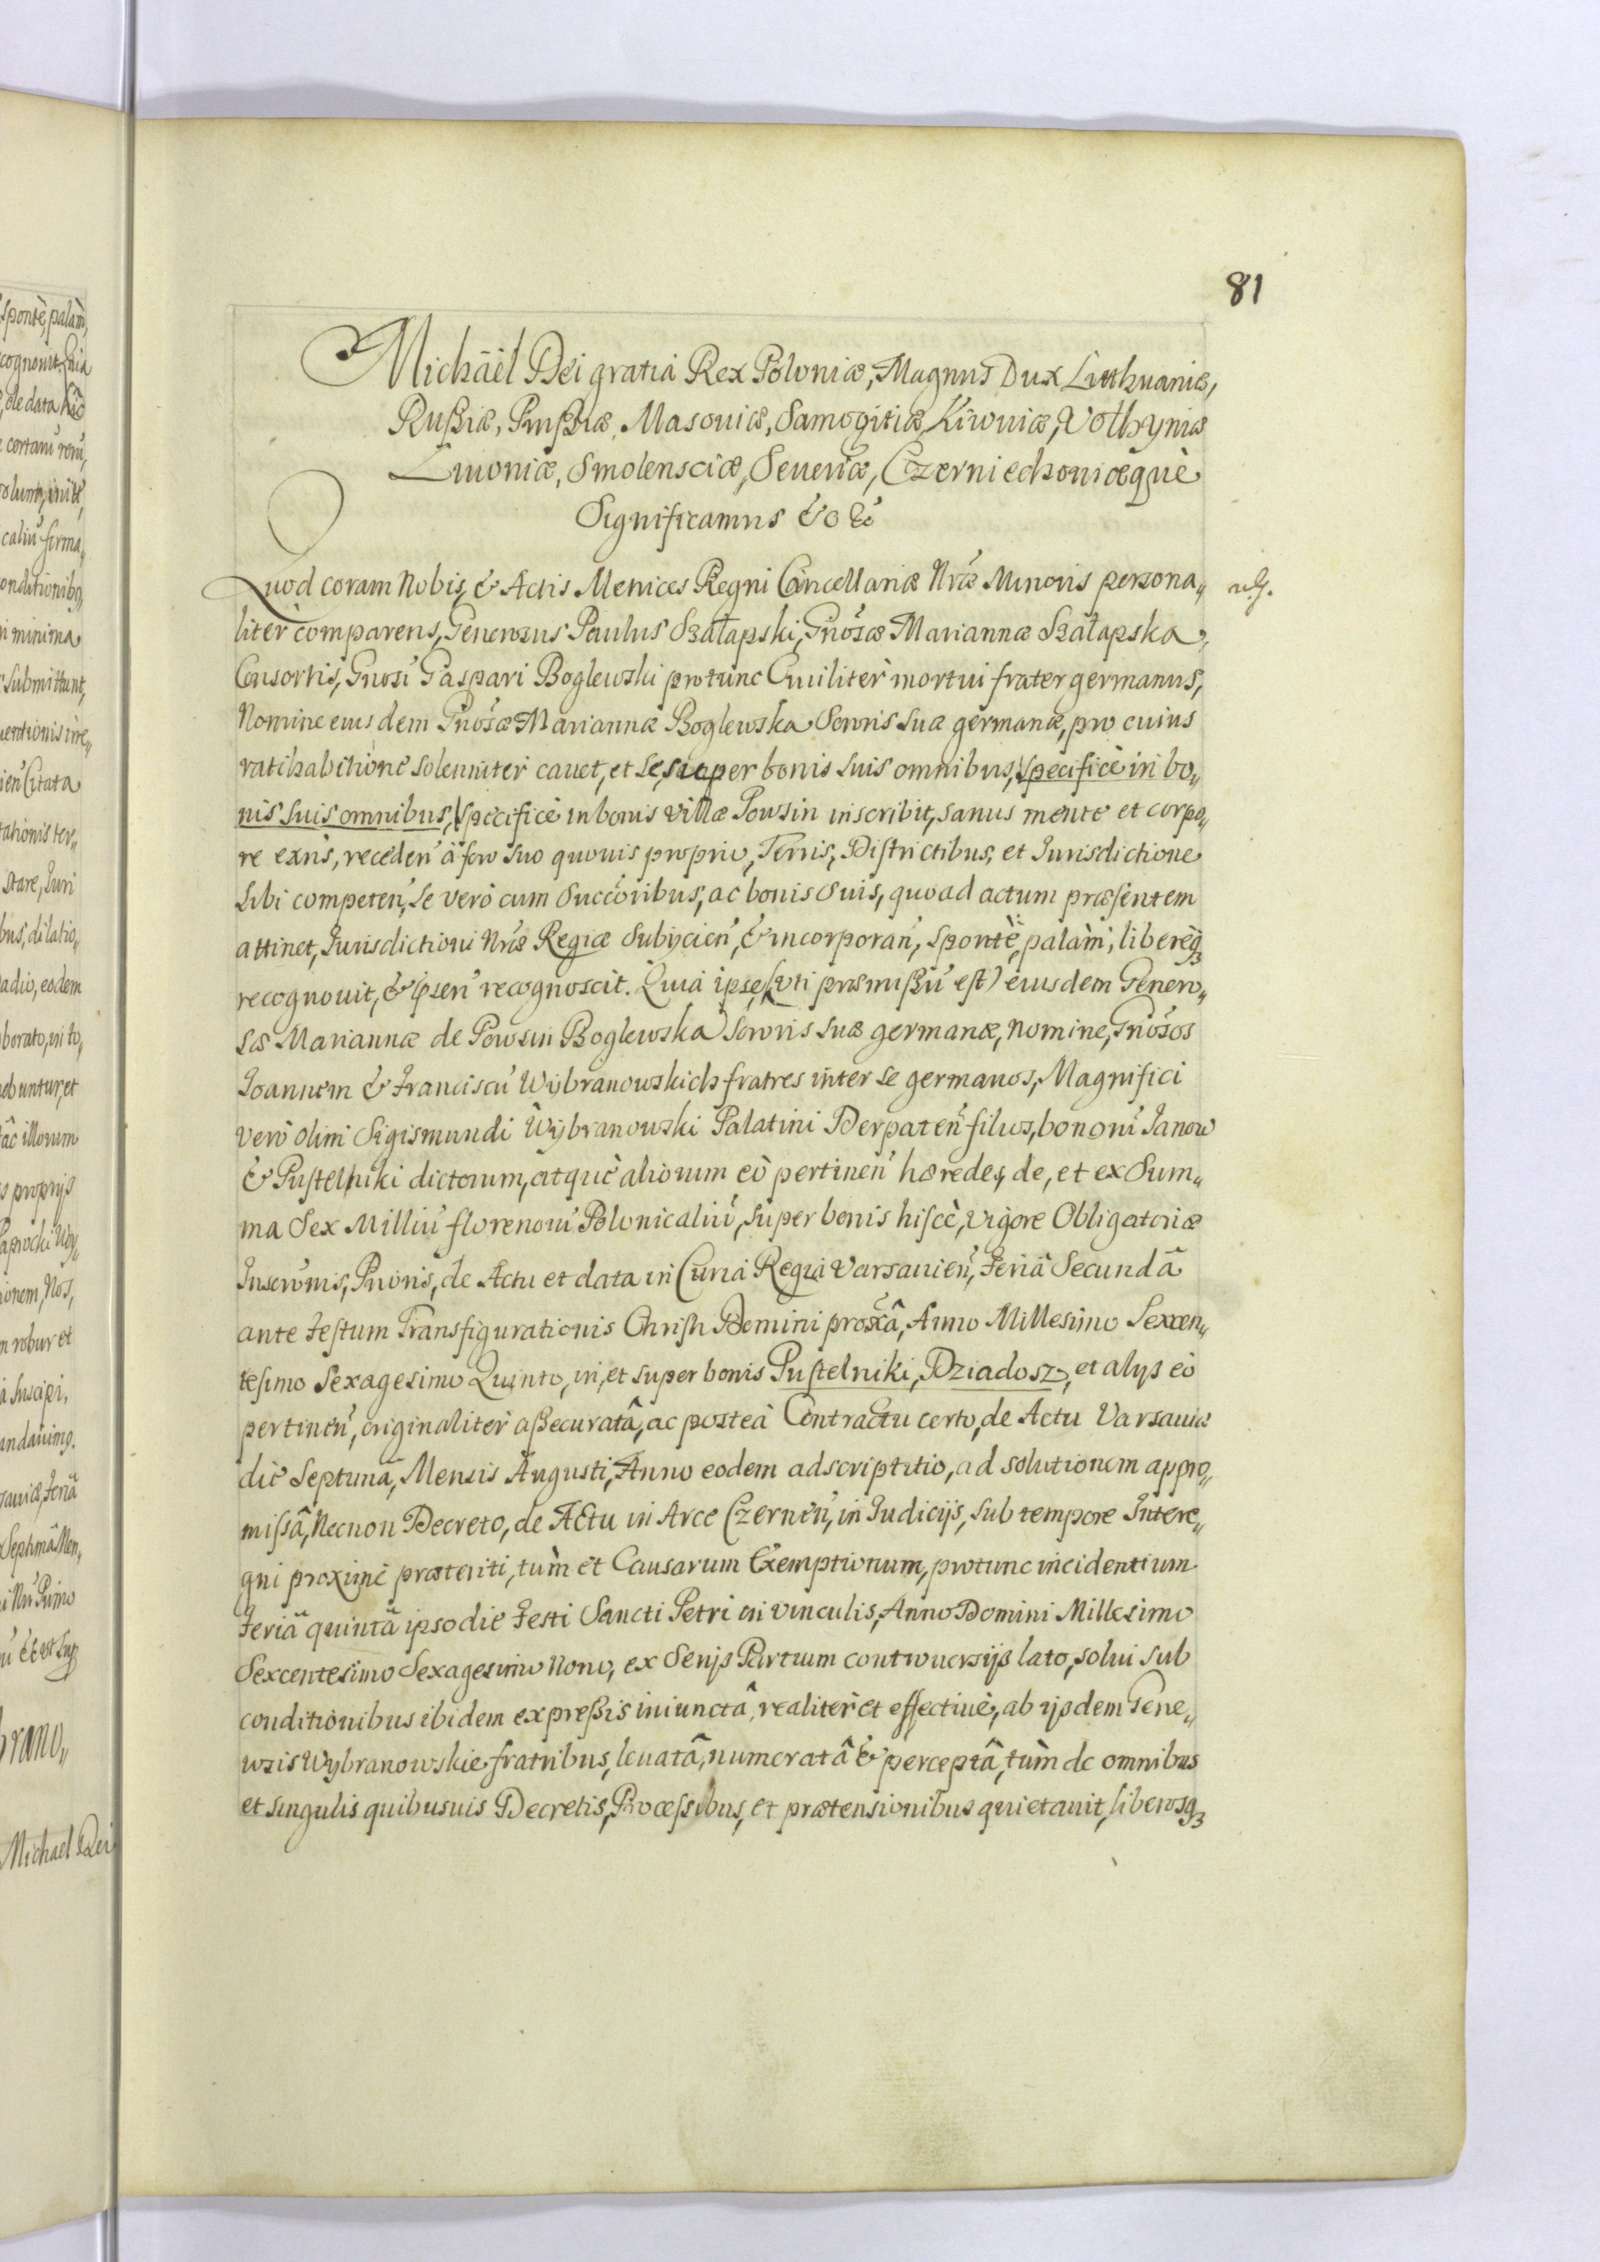 81
Michäel Dei gratiâ Rex Poloniæ, Magnus Dux Litthuaniæ,
Rußiæ, Prußiæ, Masouiæ, Samogitiæ, Kiiouiæ, Volhyniæ
Liuoniæ, Smolensciæ, Seueriæ, Czerniechouiæq́ue
Significamus &c &c
Quod coram Nobis, & Actis Metrices Regni Cancellariæ Nr̃æ Minoris persona„
litèr comparens, Generosus Paulus Szałapski, Gñosæ Mariannæ Szałapska,
Consortis, Gnosi Gaspari Boglewski pro tunc Ciuilitèr mortui frater germanus,
Nomine eius dem Gnõsæ Mariannæ Boglewska Sororis suæ germanæ, pro cuius
ratihabitione solennitèr cauet, et se, super bonis suis omnibus, specificè in bo„
nis suis omnibus, specificè in bonis villæ Powsin inscribit, sanus mente et corpo„
re exñs, receden̄ à foro suo quouis proprio, Terris, Districtibus, et Jurisdictione
sibi competen̄, se verò cum Succõribus, ac bonis suis, quoad actum præsentem
attinet, Jurisdictioni Nr̃æ Regiæ Subijcien̄, & incorporan̄, spontè, palàm, liberèq3
recognouit, & p̃sen̄ recognoscit. Quia ipse (vti præmißũ est) eiusdem Genero„
sæ Mariannæ de Powsin Boglewska Sororis suæ germanæ, nomine, Gnõsos
Joannem & Franciscũ Wybranowskich fratres inter se germanos, Magnifici
verò olim Sigismundi Wybranowski Palatini Derpaten̄ filios, bonorũ Janow
& Pustelniki dictorum, atquè aliorum eò pertinen̄ hæredes, de, et ex Sum„
ma Sex Milliũ florenorũ Polonicaliũ, super bonis hiscè, vigore Obligatoriæ
Inscrõnis, Prioris, de Actu et data in Curia Regia Varsauien̄, Feriâ Secundâ
ante Festum Transfigurationis Christi Domini proxâ, Anno Millesimo Sexcen„
tesimo Sexagesimo Quinto, in, et super bonis Pustelniki, Dziadosz, et alijs eò
pertinen̄, originalitèr aßecuratâ, ac posteà Contractu certo, de Actu Varsauiæ
die Septimâ, Mensis Augusti, Anno eodem adscriptitio, ad solutionem appro„
missâ, Necnon Decreto, de Actu in Arce Czernen̄, in Judicijs, sub tempore Intere„
gni proximè præteriti, tùm et Causarum Exemptionum, protunc incidentium
Feriâ quintâ ipso die Festi Sancti Petri in vinculis, Anno Domini Millesimo
Sexcentesimo Sexagesimo Nono, ex Serijs Partium controuersijs lato, solui sub
conditionibus ibidem expreßis iniunctâ, realitèr et effectiuè, ab ijsdem Gene„
rosis Wybranowskie fratribus, leuatâ, numeratâ & perceptâ, tùm de omnibus
et singulis quibusuis Decretis, Processibus, et prætensionibus quietauit, liberosq3